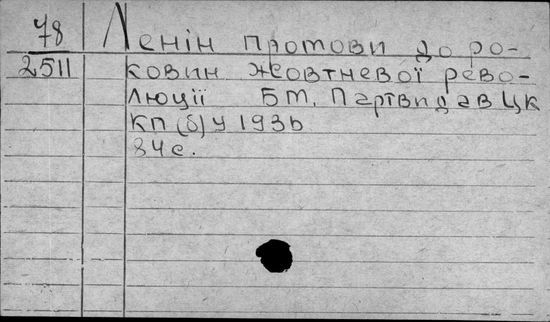 78 Ленін промови до ро-
2511 ковин жовтневої рево-
люції БМ, Партвидав ЦК
КП(б)У 1936
84с.